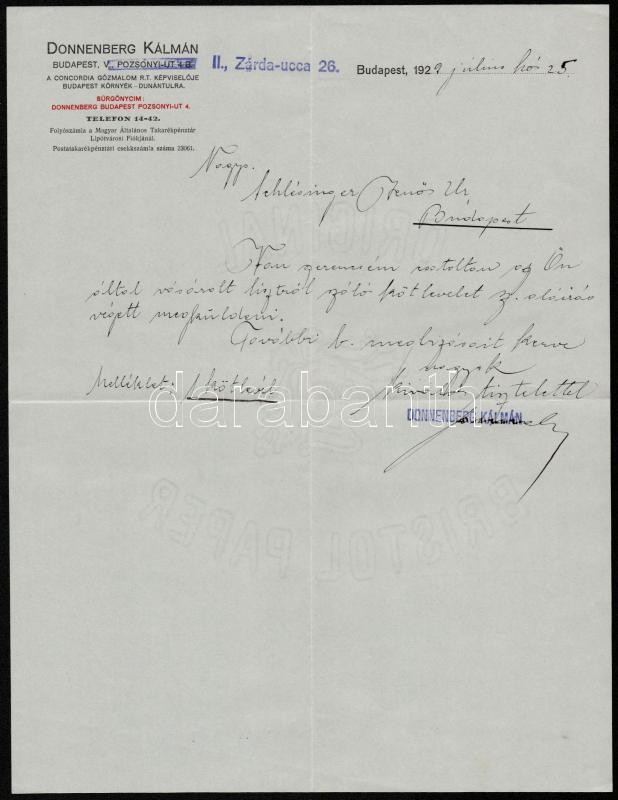 DONNENBERG KÁLMÁN
BUDAPEST, V., POZSONYI-UT 4 B.
II., Zárda-ucca 26.
Budapest, 1929 július hó 25.
A CONCORDIA GŐZMALOM R.T. KÉPVISELŐJE
BUDAPEST KÖRNYÉK—DUNÁNTULRA.
SÜRGÖNYCIM:
DONNENBERG BUDAPEST POZSONYI-UT 4.
TELEFON 14-42.
Folyószámla a Magyar Általános Takarékpénztár
Lipótvárosi Fiókjánál.
Postatakarékpénztári csekkszámla száma 23061.
Nagys.
Schlésinger Jenős Ur
Budapest
Van szerencsém csatoltan az Ön
által vásárolt lisztről szóló kötlevelet sz. aláirás
végett megküldeni.
További b. megbizásait kérve
vagyok
Melléklet: 1 kötlevél
kiváló tisztelettel
DONNENBERG KÁLMÁN
darabanth
ORIGINAL
BRISTOL PAPER